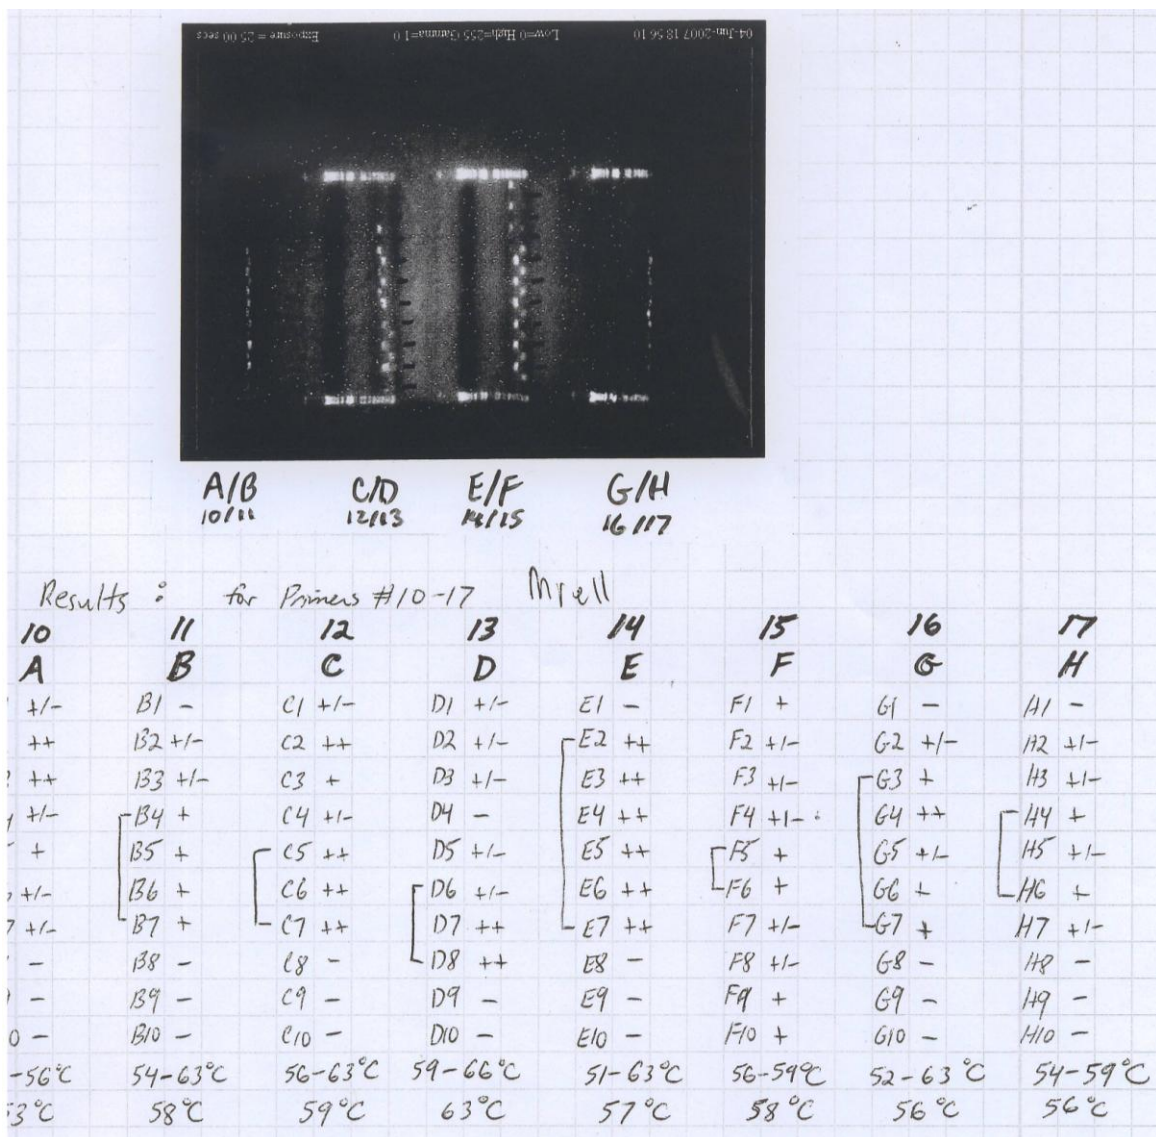 Exposure = 25 00 secs
Low=0 High=255 Gamma=1 0
04-Jun-2007 18 56 10
A/B C/D E/F G/H
10/11 12/13 14/15 16/17
Results : for Primers #10-17
10 11 12 13 14 15 16 17
A B C D E F G H
+/- B1 - C1 +/- D1 +/- E1 - F1 + G1 - H1 -
++ B2 +/- C2 ++ D2 +/- E2 ++ F2 +/- G2 +/- H2 +/-
++ B3 +/- C3 + D3 +/- E3 ++ F3 +/- G3 + H3 +/-
+/- B4 + C4 +/- D4 - E4 ++ F4 +/- G4 ++ H4 +
+ B5 + C5 ++ D5 +/- E5 ++ F5 + G5 +/- H5 +/-
+/- B6 + C6 ++ D6 +/- E6 ++ F6 + G6 + H6 +
+/- B7 + C7 ++ D7 ++ E7 ++ F7 +/- G7 + H7 +/-
- B8 - C8 - D8 ++ E8 - F8 +/- G8 - H8 -
- B9 - C9 - D9 - E9 - F9 + G9 - H9 -
0 - B10 - C10 - D10 - E10 - F10 + G10 - H10 -
-56°C 54-63°C 56-63°C 59-66°C 51-63°C 56-59°C 52-63°C 54-59°C
3°C 58°C 59°C 63°C 57°C 58°C 56°C 56°C